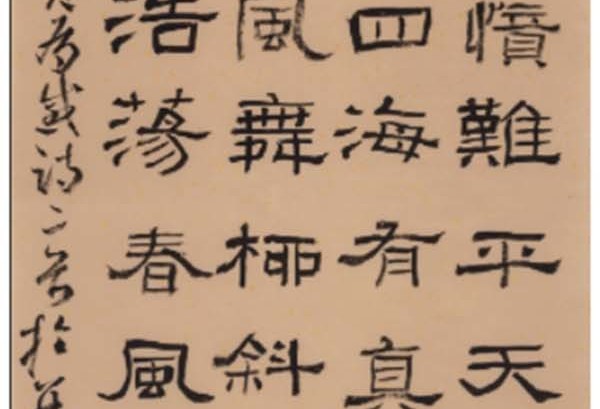 憤難平天
四海有真
風舞柳斜
浩蕩春風
詩二首於